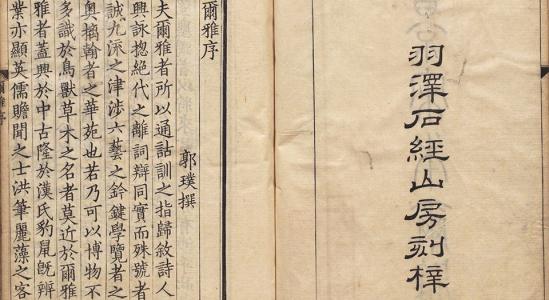 羽澤石經山房刻梓
爾雅序
郭璞撰
夫爾雅者所以通詁訓之指歸敘詩人
興詠揔絶代之離詞辯同實而殊號者
誠九流之津涉六藝之鈐鍵學覽者之
奧摛翰者之華苑也若乃可以博物不
多識於鳥獸草木之名者莫近於爾雅
雅者蓋興於中古隆於漢氏豹鼠旣辨
業亦顯英儒贍聞之士洪筆麗藻之客
爾雅序